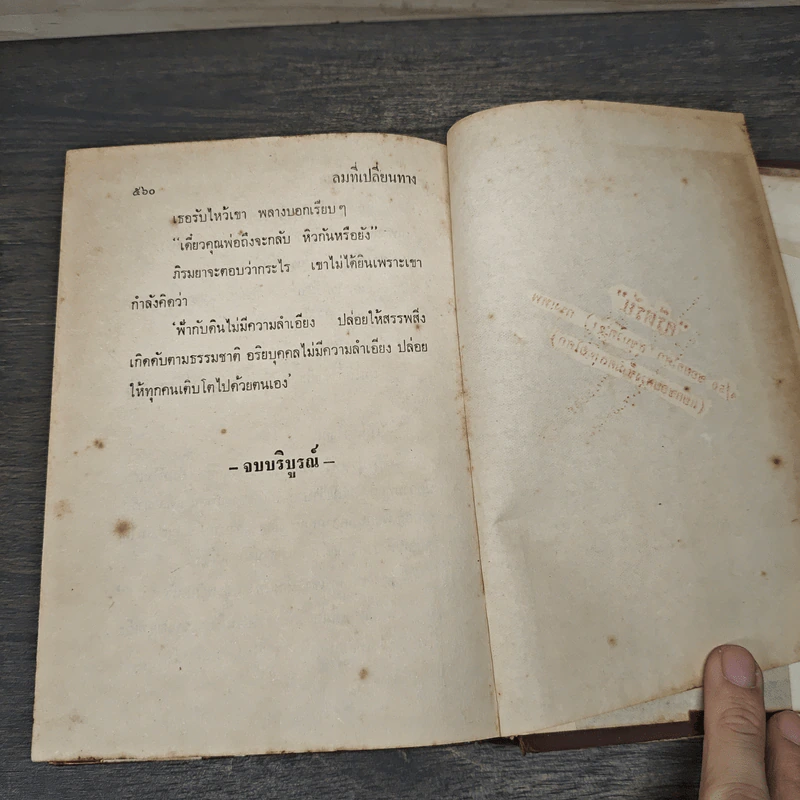 ๕๖๐
ลมที่เปลี่ยนทาง
เธอรับไหว้เขา พลางบอกเรียบๆ
“เดี๋ยวคุณพ่อถึงจะกลับ หิวกันหรือยัง”
ภิรมยาจะตอบว่ากระไร เขาไม่ได้ยินเพราะเขา
กำลังคิดว่า
‘ฟ้ากับดินไม่มีความลำเอียง ปล่อยให้สรรพสิ่ง
เกิดดับตามธรรมชาติ อริยบุคคลไม่มีความลำเอียง ปล่อย
ให้ทุกคนเติบโตไปด้วยตนเอง’
– จบบริบูรณ์ –